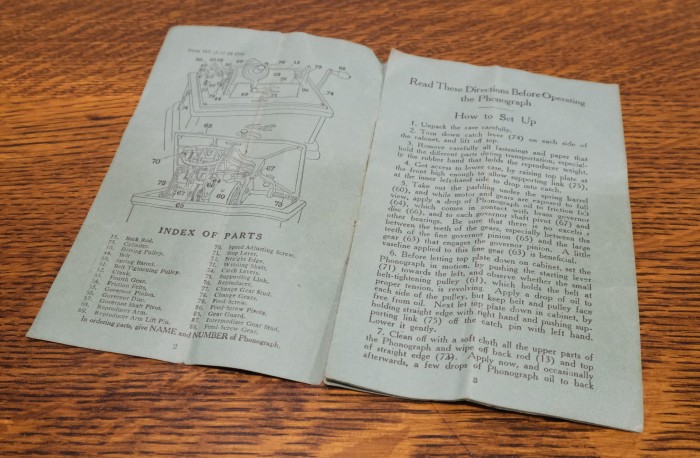 INDEX OF PARTS
Back Rod.
Cylinder.
Driving Pulley.
Belt.
Spring Barrel.
Belt Tightening Pulley.
Crank.
Fourth Gear.
Friction Felts.
Governor Pinion.
Governor Disc.
Governor Shaft Pivot.
Reproducer Arm.
Reproducer Arm Lift Pin.
70. Speed Adjusting Screw.
71. Stop Lever.
Straight Edge.
Winding Shaft.
74. Catch Levers.
75. Supporting Link.
76. Reproducer.
Change Gear Stud.
Change Gears.
Feed-Screw.
Feed-Screw Pivots.
Gear Guard.
Intermediate Gear Stud.
Feed-Screw Gear.
In ordering parts, give NAME and NUMBER of Phonograph.
2
Read These Directions Before Operating
the Phonograph
How to Set Up
1. Unpack the case carefully.
2. Turn down catch lever (74) on each side of
the cabinet, and lift off top.
3. Remove carefully all fastenings and paper that
hold the different parts during transportation, especial-
ly the rubber band that holds the reproducer weight.
4. Get access to lower case, by raising top plate at
the front high enough to allow supporting link (75),
at the inner left-hand side to drop into catch.
5. Take out the padding under the spring barrel
(60), and while motor and gears are exposed to full
view, apply a drop of Phonograph oil to friction felt
(64), which comes in contact with brass governor
disc (66), and to each governor shaft pivot (67) and
other bearings. Be sure that there is no excelsior
between the teeth of the gears, especially between the
teeth of the fine governor pinion (65) and the large
gear (63) that engages the governor pinion. A little
vaseline applied to this gear (63) is beneficial.
6. Before letting top plate down on cabinet, set the
Phonograph in motion, by pushing the starting lever
(71) towards the left, and observe whether the small
belt-tightening pulley (61), which holds the belt at
proper tension, is revolving. Apply a drop of oil to
each side of the pulley, but keep belt and pulley face
free from oil. Next let top plate down in cabinet, by
holding straight edge with right hand and pushing sup-
porting link (75) off the catch pin with left hand.
Lower it gently.
7. Clean off with a soft cloth all the upper parts of
the Phonograph and wipe off back rod (13) and top
of straight edge (72). Apply now, and occasionally
afterwards, a few drops of Phonograph oil to back
3